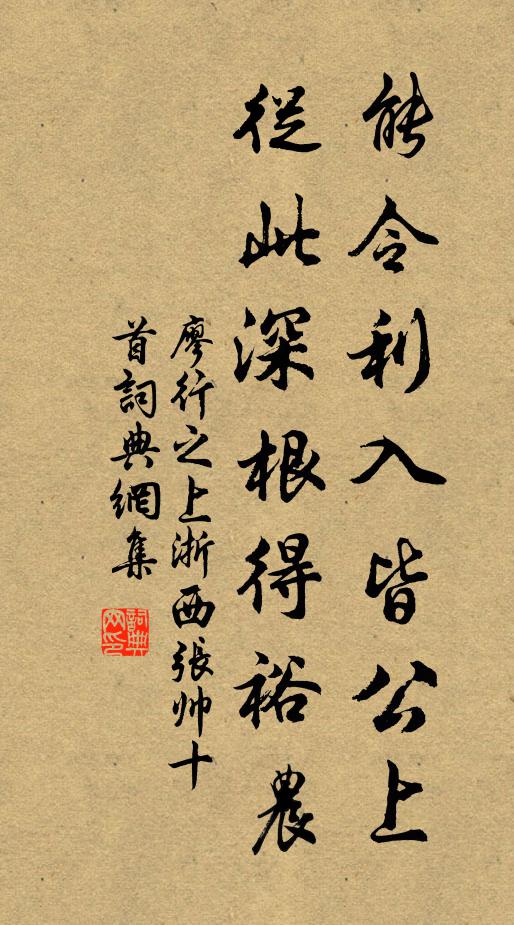 能令利入皆公上
從此深根得裕農
廖行之上浙西張帅十
首詞典網集
詞典网印